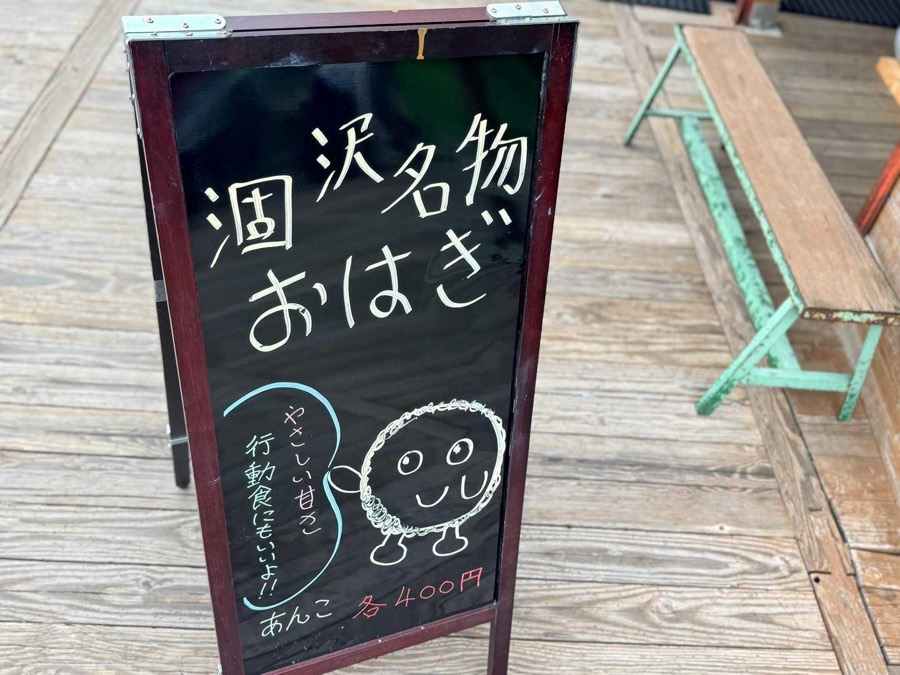 涸沢名物
おはぎ
やさしい甘さ
行動食にもいいよ!!
あんこ 各400円